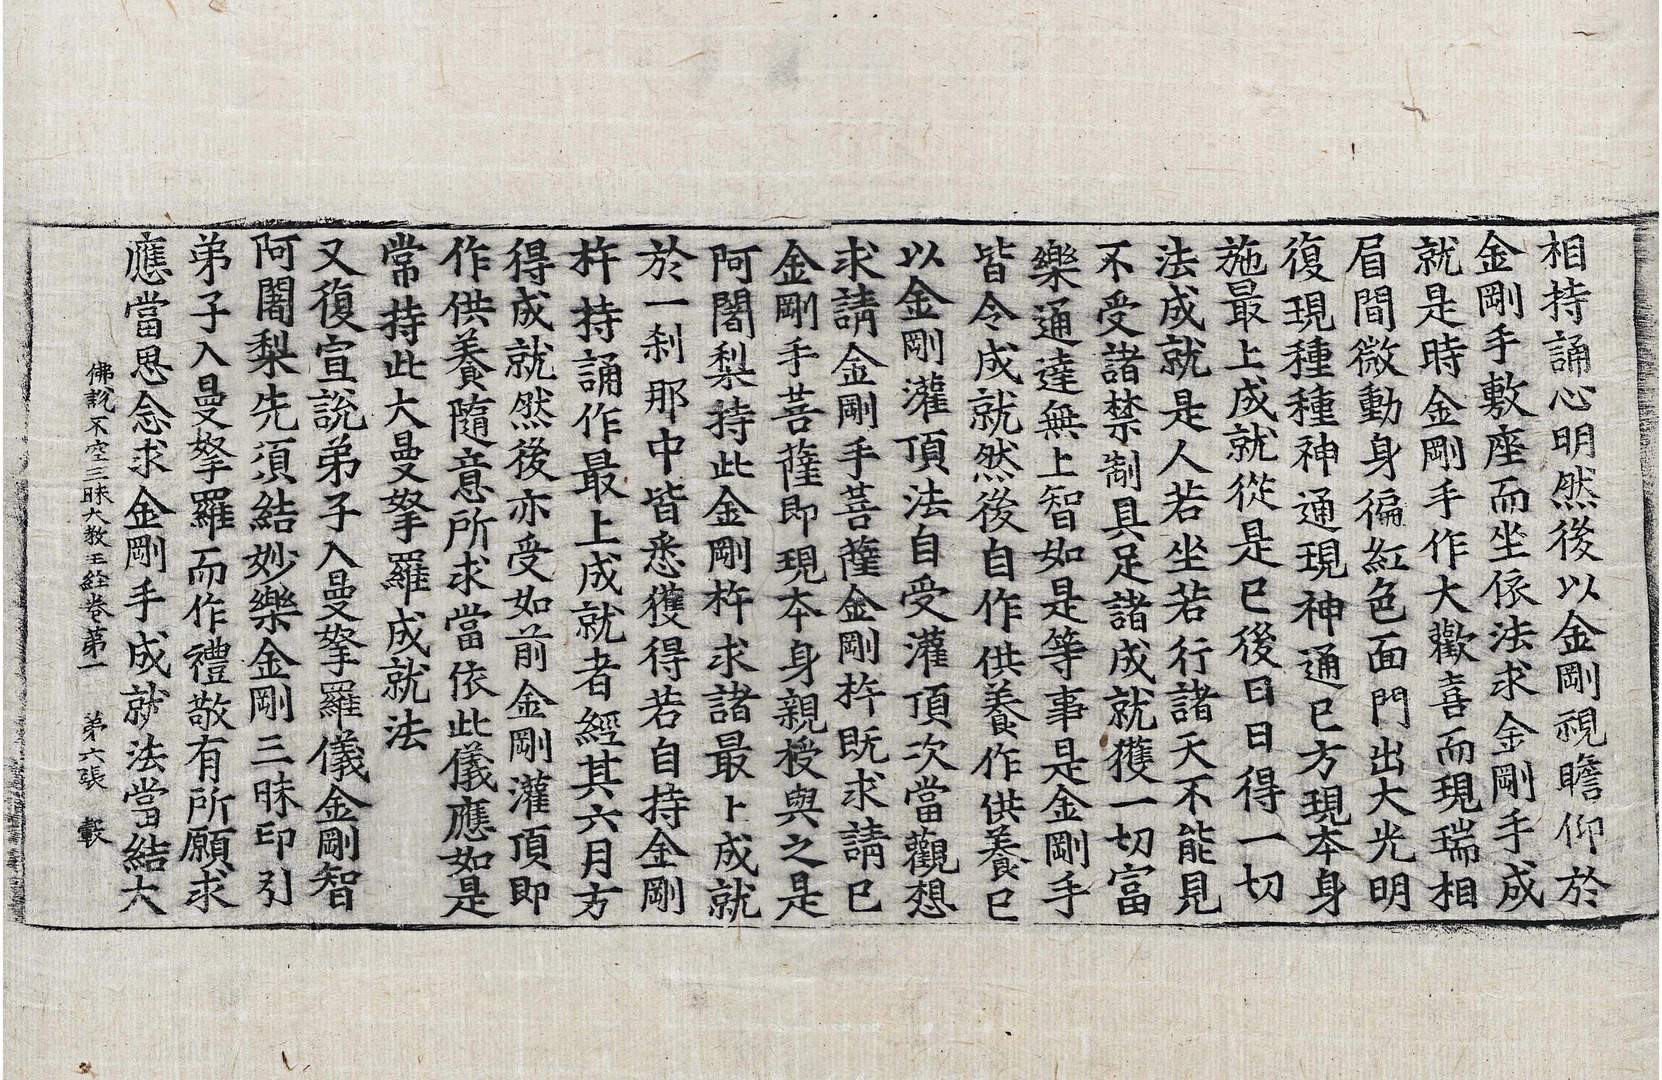 相持誦心明然後以金剛視瞻仰於
金剛手敷座而坐依法求金剛手成
就是時金剛手作大歡喜而現瑞相
眉間微動身徧紅色面門出大光明
復現種種神通現神通已方現本身
施最上成就從是已後日日得一切
法成就是人若坐若行諸天不能見
不受諸禁制具足諸成就獲一切富
樂通達無上智如是等事是金剛手
皆令成就然後自作供養作供養已
以金剛灌頂法自受灌頂次當觀想
求請金剛手菩薩金剛杵既求請已
金剛手菩薩即現本身親授與之是
阿闍梨持此金剛杵求諸最上成就
於一刹那中皆悉獲得若自持金剛
杵持誦作最上成就者經其六月方
得成就然後亦受如前金剛灌頂即
作供養隨意所求當依此儀應如是
常持此大曼拏羅成就法
又復宣說弟子入曼拏羅儀金剛智
阿闍梨先須結妙樂金剛三昧印引
弟子入曼拏羅而作禮敬有所願求
應當思念求金剛手成就法當結大
佛說不空三昧大教王經卷第一 第六張 轂